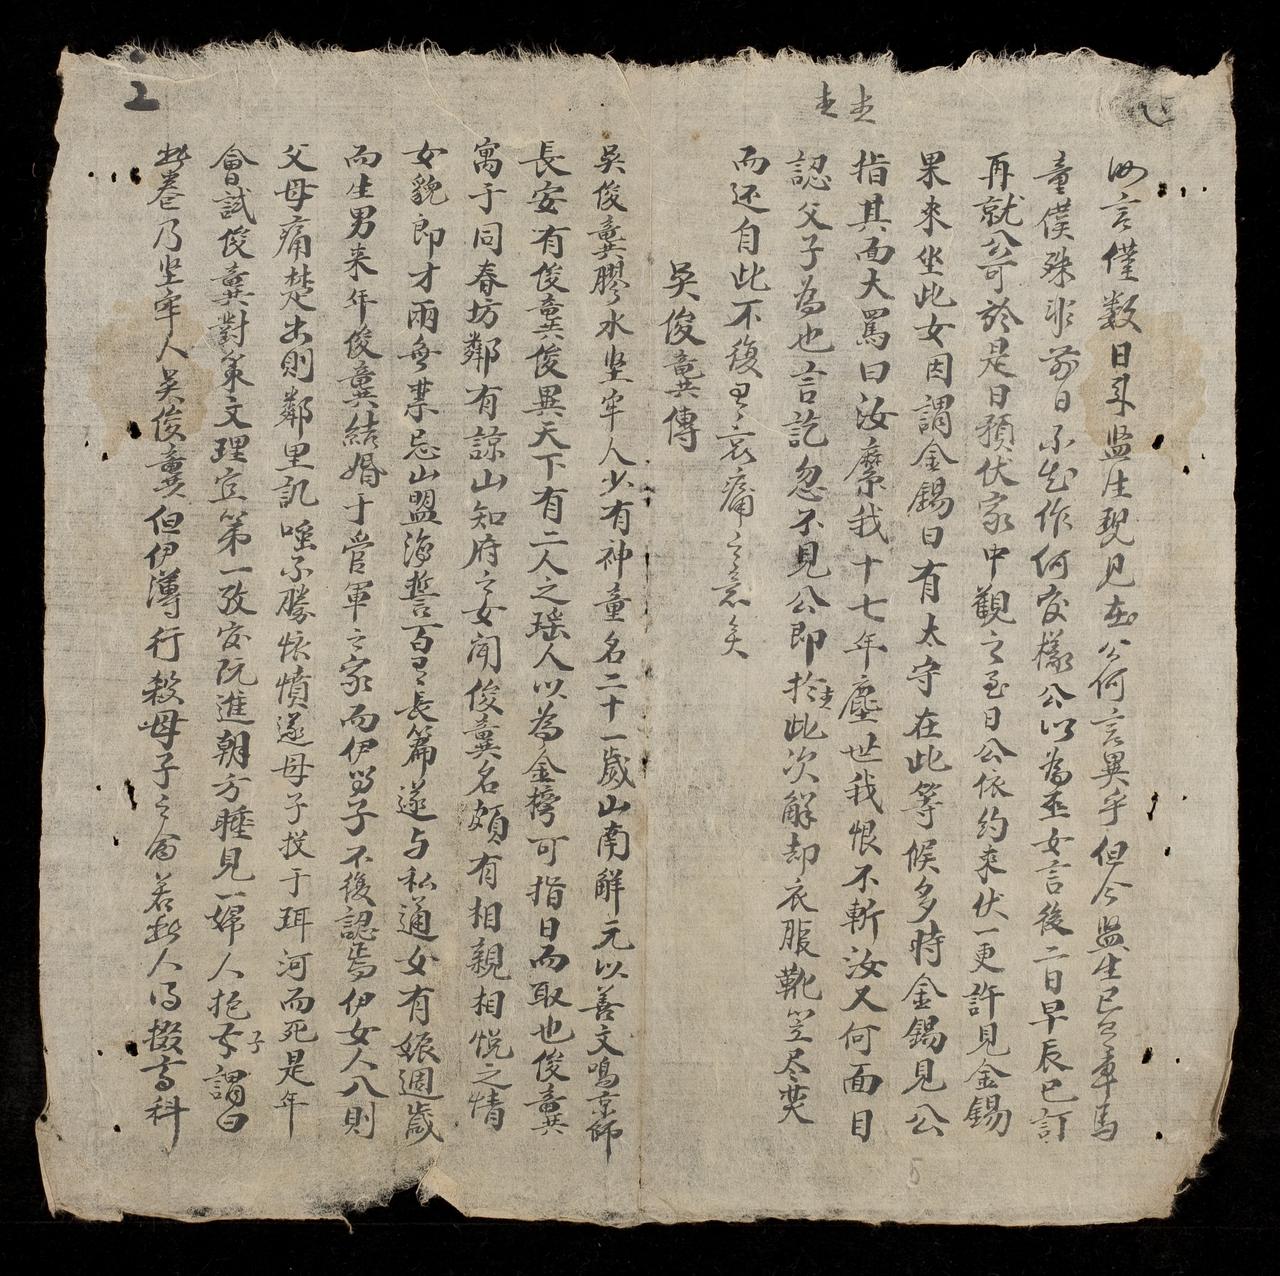 圭圭
此言僅数日承监生現見在公何言異乎但今監生已乞車馬
童僕殊非前日不知作何发樣公以為巫女言後二日早辰已訂
再就公可於是日預伏家中觀之至日公依約来伏一更許見金錫
果來坐此女因謂金錫曰有太守在此等候多時金錫見公
指其面大罵曰汝縻我十七年塵世我恨不斬汝又何面目
認父子為也言訖忽不見公即於圭此次解却衣服靴笠尽焚
而还自此不復有哀痛之意矣
吳俊龔傳
吳俊龔膠水坚牢人少有神童名二十一歲山南解元以善文鳴京師
長安有俊龔俊異天下有二人之瑶人以為金榜可指日而取也俊龔
寓于同春坊鄰有諒山知府之女聞俊龔名頗有相親相悦之情
女貌郎才兩無禁忌山盟海誓百有長篇遂与私通女有娠週歲
而生男来年俊龔結婚于管軍之家而伊男子不復認焉伊女人入則
父母痛楚出則鄰里訊嗤不勝怅憤遂母子投于珥河而死是年
會試俊龔對策文理宜第一攷官阮進朝方睡見一婦人抱子謂曰
此卷乃坚牢人吳俊龔但伊薄行殺母子之命若此人得掇高科